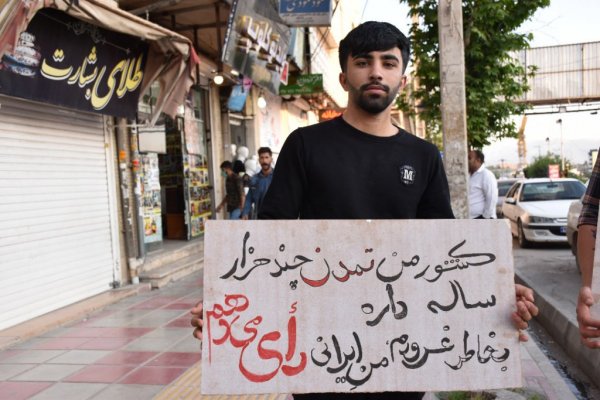 طلای بشارت
کشور من تمدن چند هزار
ساله داره
بخاطر غرورم من ایرانی رأی میدهم
M